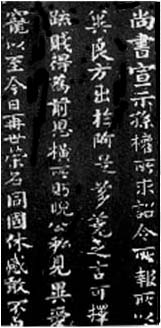 尚書宣示孫權所求詔令所報所以
冀良方出於阿是芻蕘之言可擇
疏賤得為前恩橫所眄睨公私見異愛
寵以至今日再世榮名同國休慼敢不